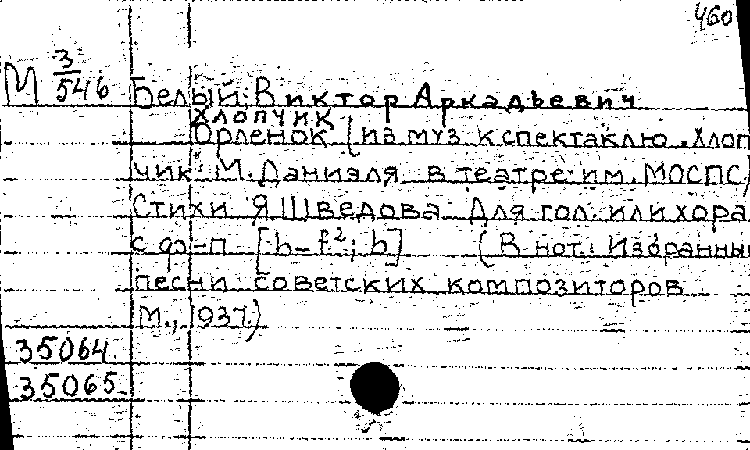 460
М 3/546 Белый, Виктор Аркадьевич
Хлопчик
Орленок (из муз. к спектаклю „Хлоп
чик" М. Даниэля в театре им. МОСПС)
Стихи Я Шведова. Для гол. или хора
с ф-п. [h-f²; h] (В нот.: Избранные
песни советских композиторов
М., 1937.)
35064.
35065.